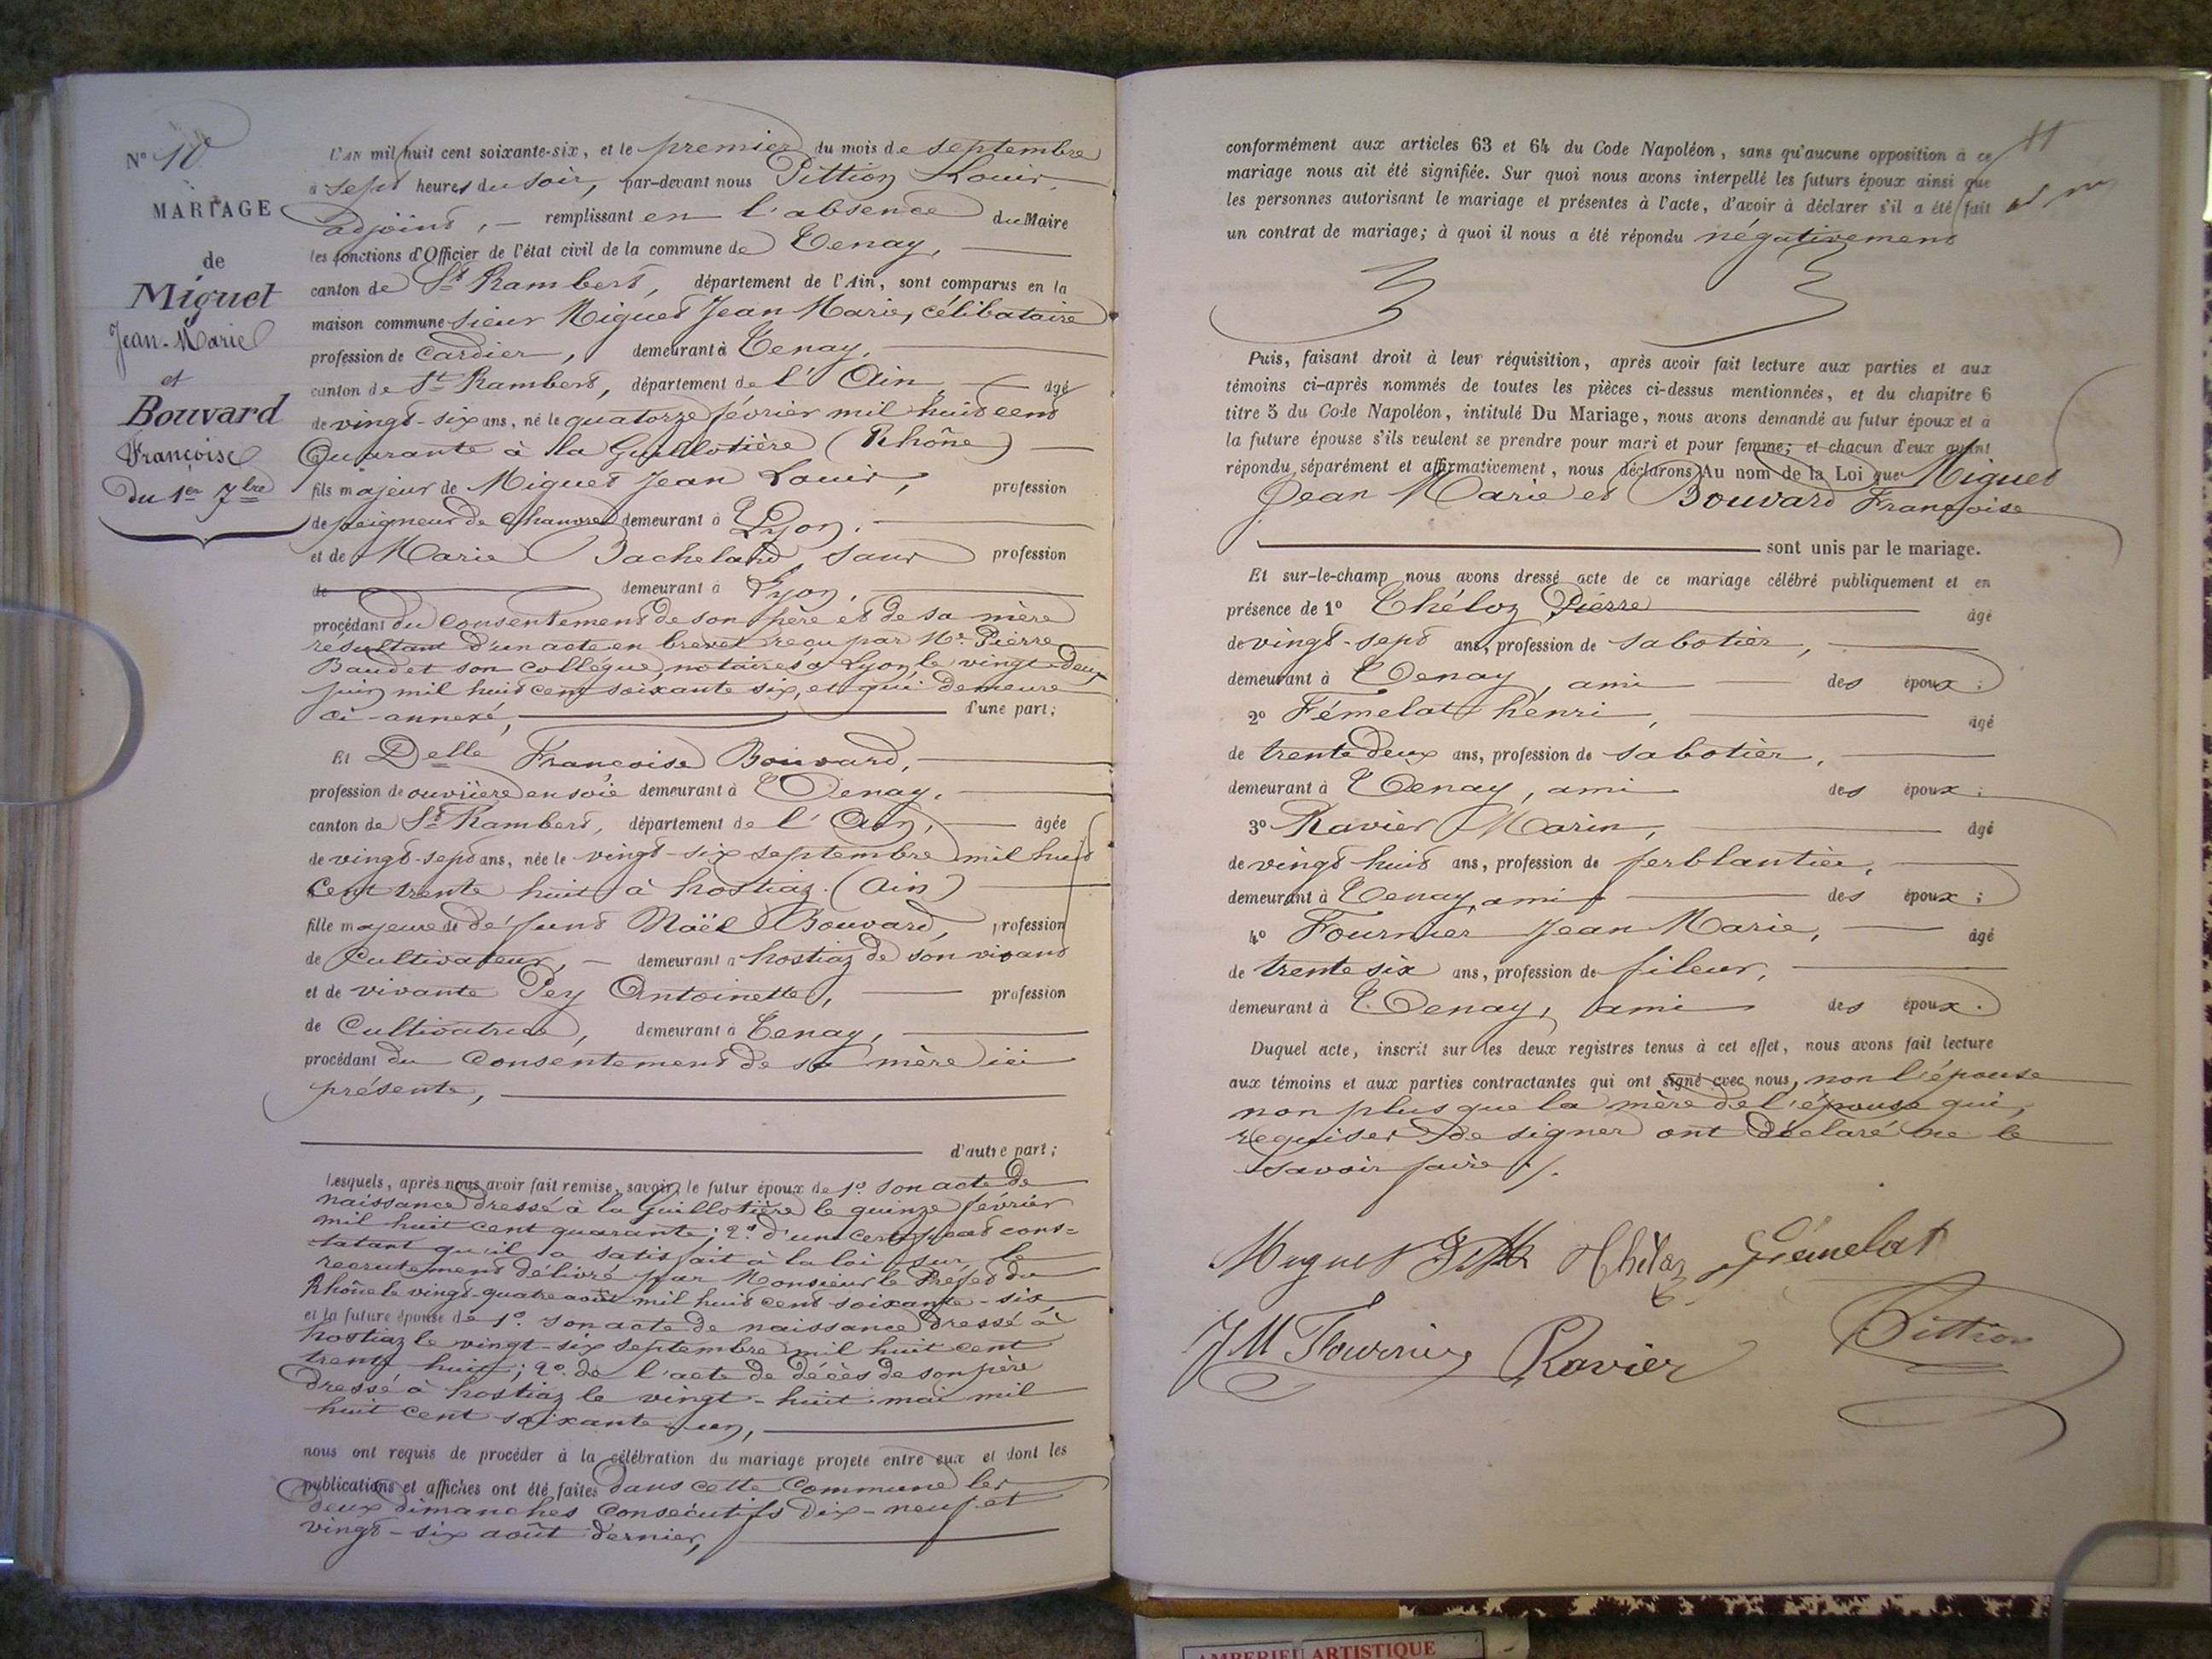 N° 10
MARIAGE
de
Miguet
Jean-Marie
et
Bouvard
Françoise
Du 1er 7bre
L'AN mil huit cent soixante-six, et le premier du mois de septembre
à sept heures du soir, par-devant nous Pittion Louis,
adjoint, — remplissant en l'absence du Maire
les fonctions d'Officier de l'état civil de la commune de Tenay,
canton de St Rambert, département de l'Ain, sont comparus en la
maison commune sieur Miguet Jean Marie, célibataire
profession de cardier, demeurant à Tenay,
canton de St Rambert, département de l'Ain, — âgé
de vingt-six ans, né le quatorze février mil huit cent
Quarante à la Guillotière (Rhône)
fils majeur de Miguet Jean Louis, profession
de peigneur de chanvre demeurant à Lyon,
et de Marie Bachelard, sans profession
de demeurant à Lyon,
procédant du consentement de son père et de sa mère
résultant d'un acte en brevet reçu par Me Pierre
Baud et son collègue, notaires à Lyon, le vingt-deux
juin mil huit cent soixante six, et qui demeure
ci-annexé, d'une part;
Et Delle Françoise Bouvard,
profession de ouvrière en soie demeurant à Tenay,
canton de St Rambert, département de l'Ain, — âgée
de vingt-sept ans, née le vingt-six septembre mil huit
Cent trente huit à hostiaz (Ain)
fille majeure de défunt Noël Bouvard, profession
de Cultivateur, — demeurant à hostiaz de son vivant
et de vivante Pey Antoinette, — profession
de Cultivatrice, demeurant à Tenay,
procédant du Consentement de sa mère ici
présente,
d'autre part;
Lesquels, après nous avoir fait remise, savoir, le futur époux de 1° son acte de
naissance dressé à la Guillotière le quinze février
mil huit cent quarante; 2° d'un certificat cons=
tatant qu'il a satisfait à la loi sur le
recrutement délivré par Monsieur le Préfet du
Rhône le vingt-quatre août mil huit cent soixante-six,
et la future épouse de 1° son acte de naissance dressé à
hostiaz le vingt-six septembre mil huit cent
trente huit; 2° de l'acte de décès de son père
dressé à hostiaz le vingt-huit mai mil
huit cent soixante un,
nous ont requis de procéder à la célébration du mariage projeté entre eux et dont les
publications et affiches ont été faites dans cette Commune les
deux dimanches consécutifs dix-neuf et
vingt-six août dernier,
11
conformément aux articles 63 et 64 du Code Napoléon, sans qu'aucune opposition à ce
mariage nous ait été signifiée. Sur quoi nous avons interpellé les futurs époux ainsi que
les personnes autorisant le mariage et présentes à l'acte, d'avoir à déclarer s'il a été fait
un contrat de mariage; à quoi il nous a été répondu négativement
Puis, faisant droit à leur réquisition, après avoir fait lecture aux parties et aux
témoins ci-après nommés de toutes les pièces ci-dessus mentionnées, et du chapitre 6
titre 5 du Code Napoléon, intitulé Du Mariage, nous avons demandé au futur époux et à
la future épouse s'ils veulent se prendre pour mari et pour femme; et chacun d'eux ayant
répondu séparément et affirmativement, nous déclarons Au nom de la Loi que Miguet
Jean Marie et Bouvard Françoise
sont unis par le mariage.
Et sur-le-champ nous avons dressé acte de ce mariage célébré publiquement et en
présence de 1° Théloz Pierre âgé
de vingt-sept ans, profession de sabotier,
demeurant à Tenay, ami des époux;
2° Fémelat henri, âgé
de trente deux ans, profession de sabotier,
demeurant à Tenay, ami des époux;
3° Ravier Marin, âgé
de vingt huit ans, profession de ferblantier,
demeurant à Tenay, ami des époux;
4° Fournier Jean Marie, âgé
de trente six ans, profession de fileur,
demeurant à Tenay, ami des époux.
Duquel acte, inscrit sur les deux registres tenus à cet effet, nous avons fait lecture
aux témoins et aux parties contractantes qui ont signé avec nous, non l'épouse
non plus que la mère de l'épouse qui,
requises de signer ont déclaré ne le
savoir faire ./.
Miguet Théloz Fémelat
J M Fournier Ravier Pittion
AMBERIEU ARTISTIQUE